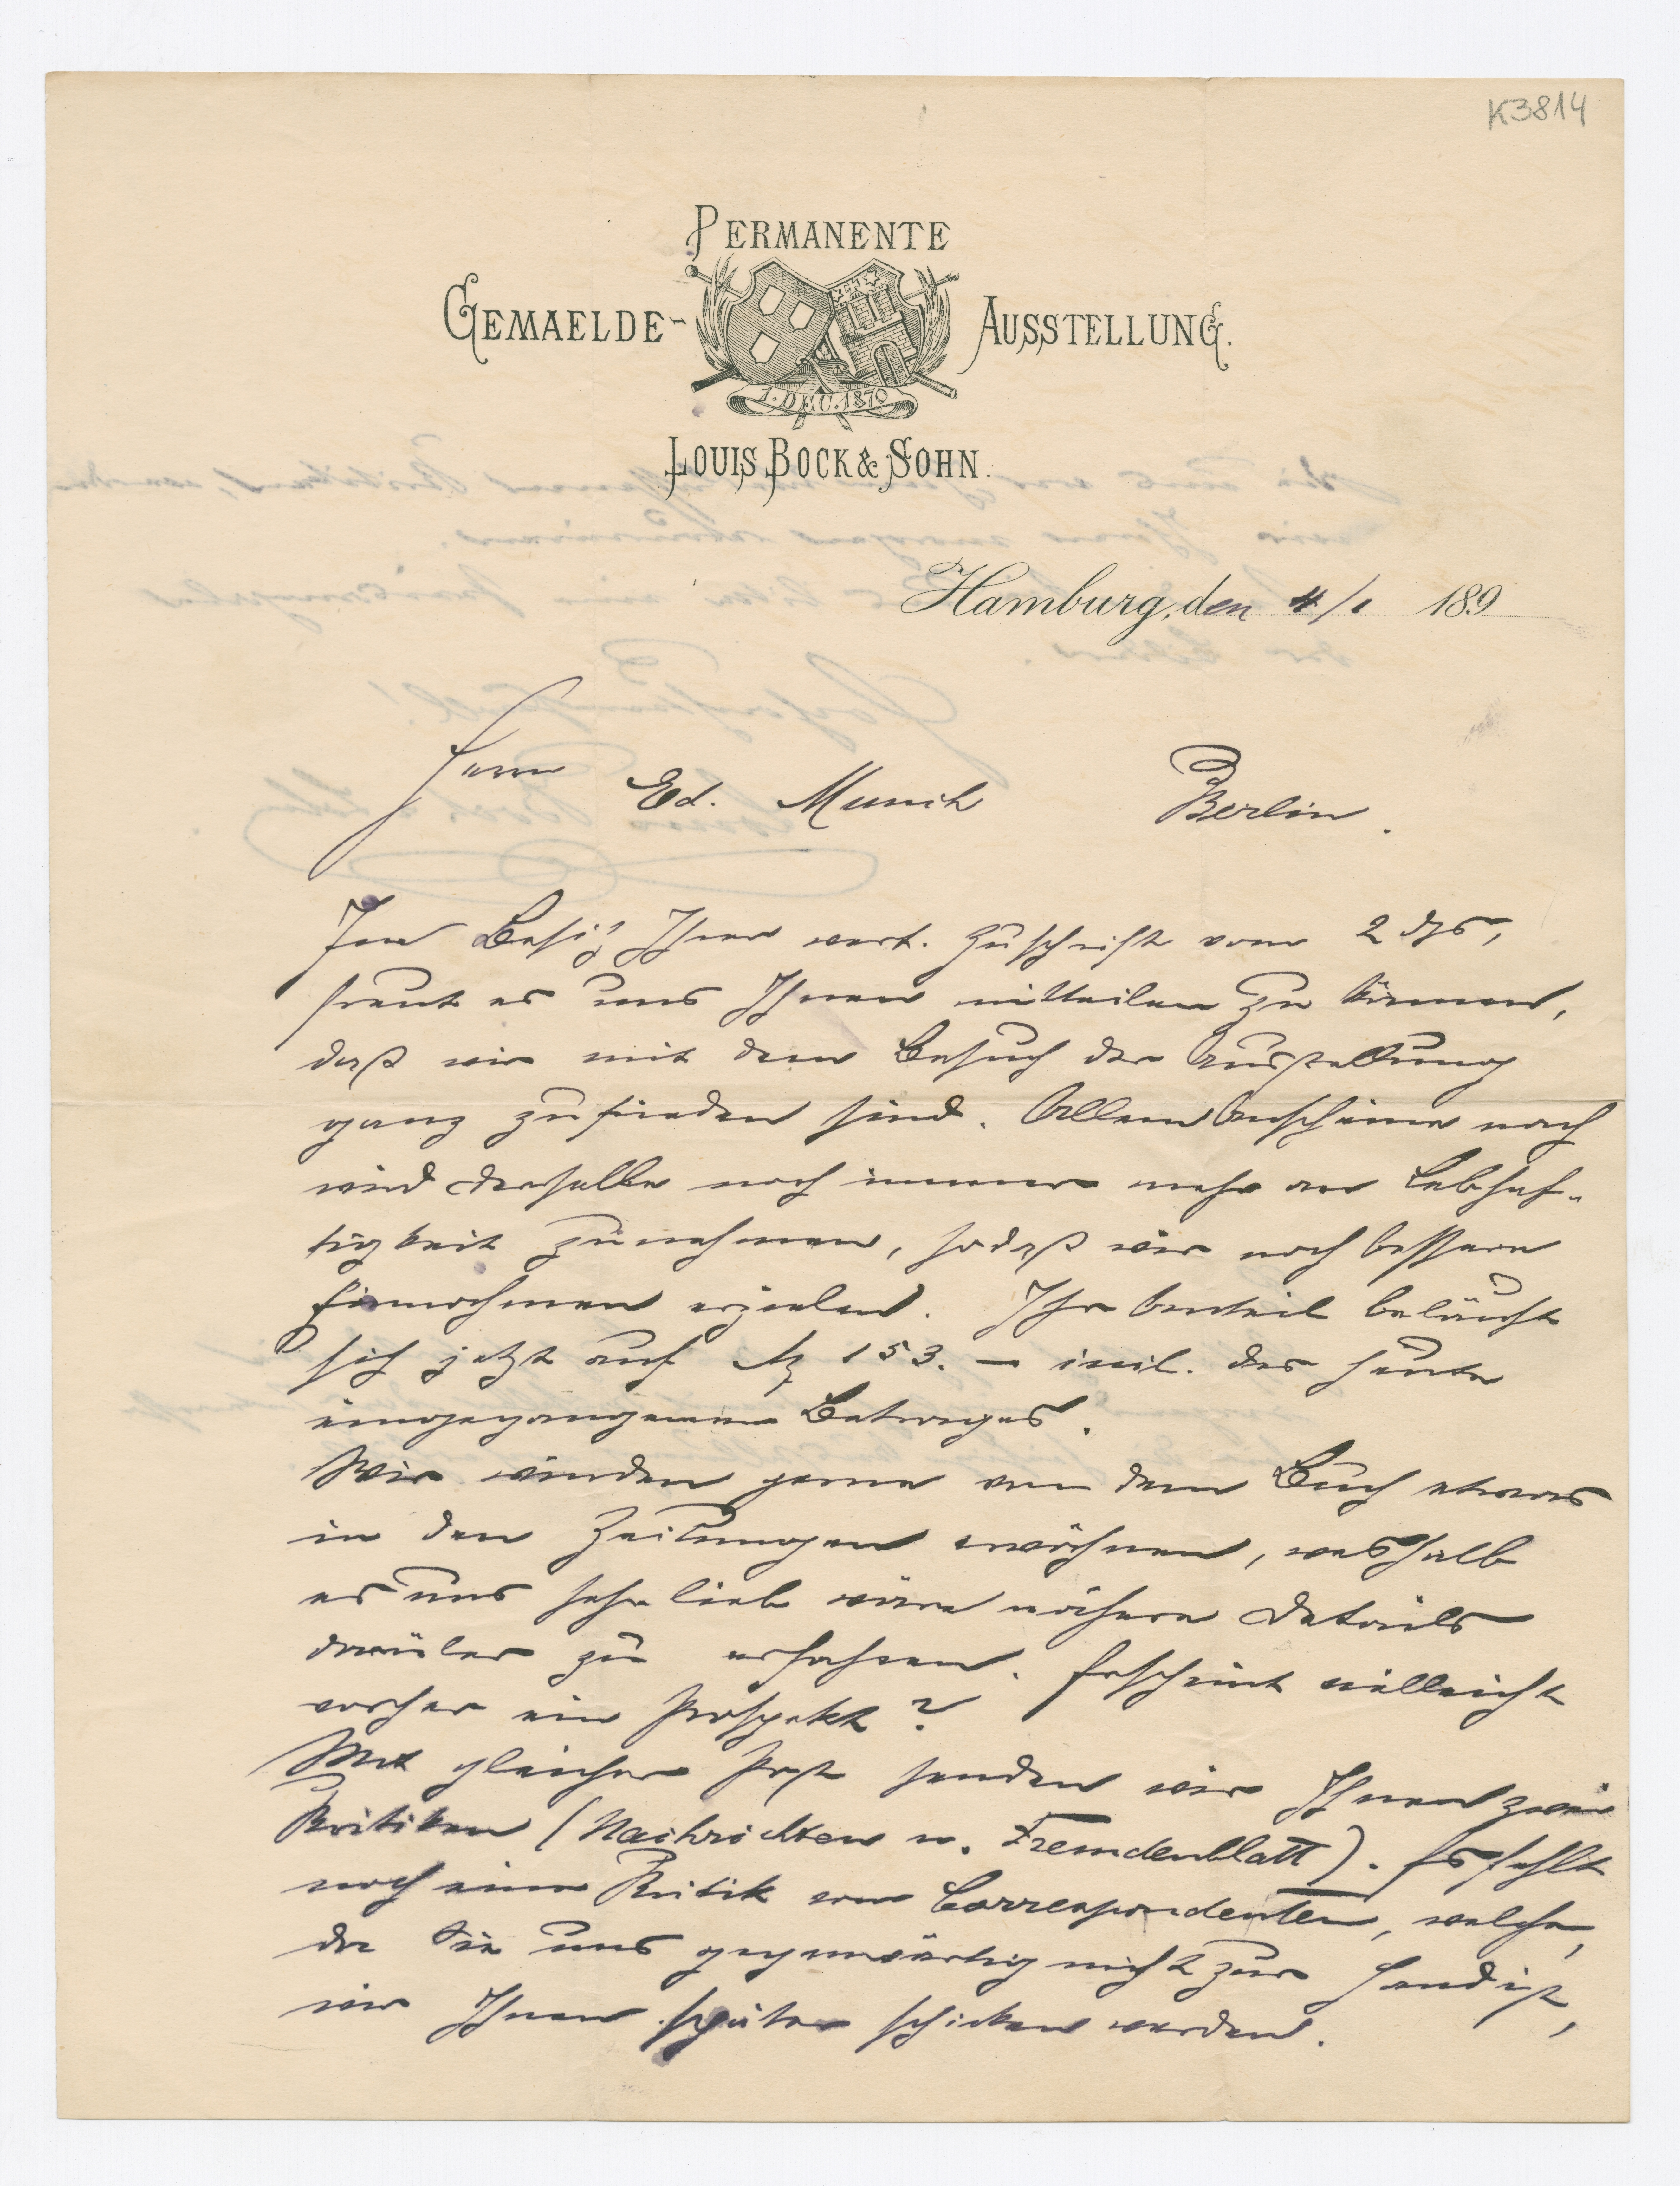 K3814
PERMANENTE
GEMAELDE- AUSSTELLUNG.
1. DEC. 1879
LOUIS BOCK & SOHN.
Hamburg, den 4/1 189
Herrn
Ed. Munch Berlin.
Im Besitz Ihrer wert. Zuschrift vom 2 ds,
freut es uns Ihnen mitteilen zu können,
daß wir mit dem Besuch der Ausstellung
ganz zufrieden sind. Allem Anscheine nach
wird derselbe noch immer mehr an Lebhaf-
tigkeit zunehmen, sodaß wir noch bessere
Einnahmen erzielen. Ihr Anteil beläuft
sich jetzt auf M 153.— incl. des heute
eingegangenen Betrages.
Wir würden gerne von dem Buch etwas
in den Zeitungen erwähnen, weshalb
es uns sehr lieb wäre nähere Details
darüber zu erfahren. Erscheint vielleicht
vorher ein Prospekt?
Mit gleicher Post senden wir Ihnen zwei
Kritiken (Nachrichten u. Fremdenblatt). Es fehlt
noch eine Kritik vom Correspondenten, welche,
da sie uns gegenwärtig nicht zur Hand ist,
wir Ihnen später schicken werden.